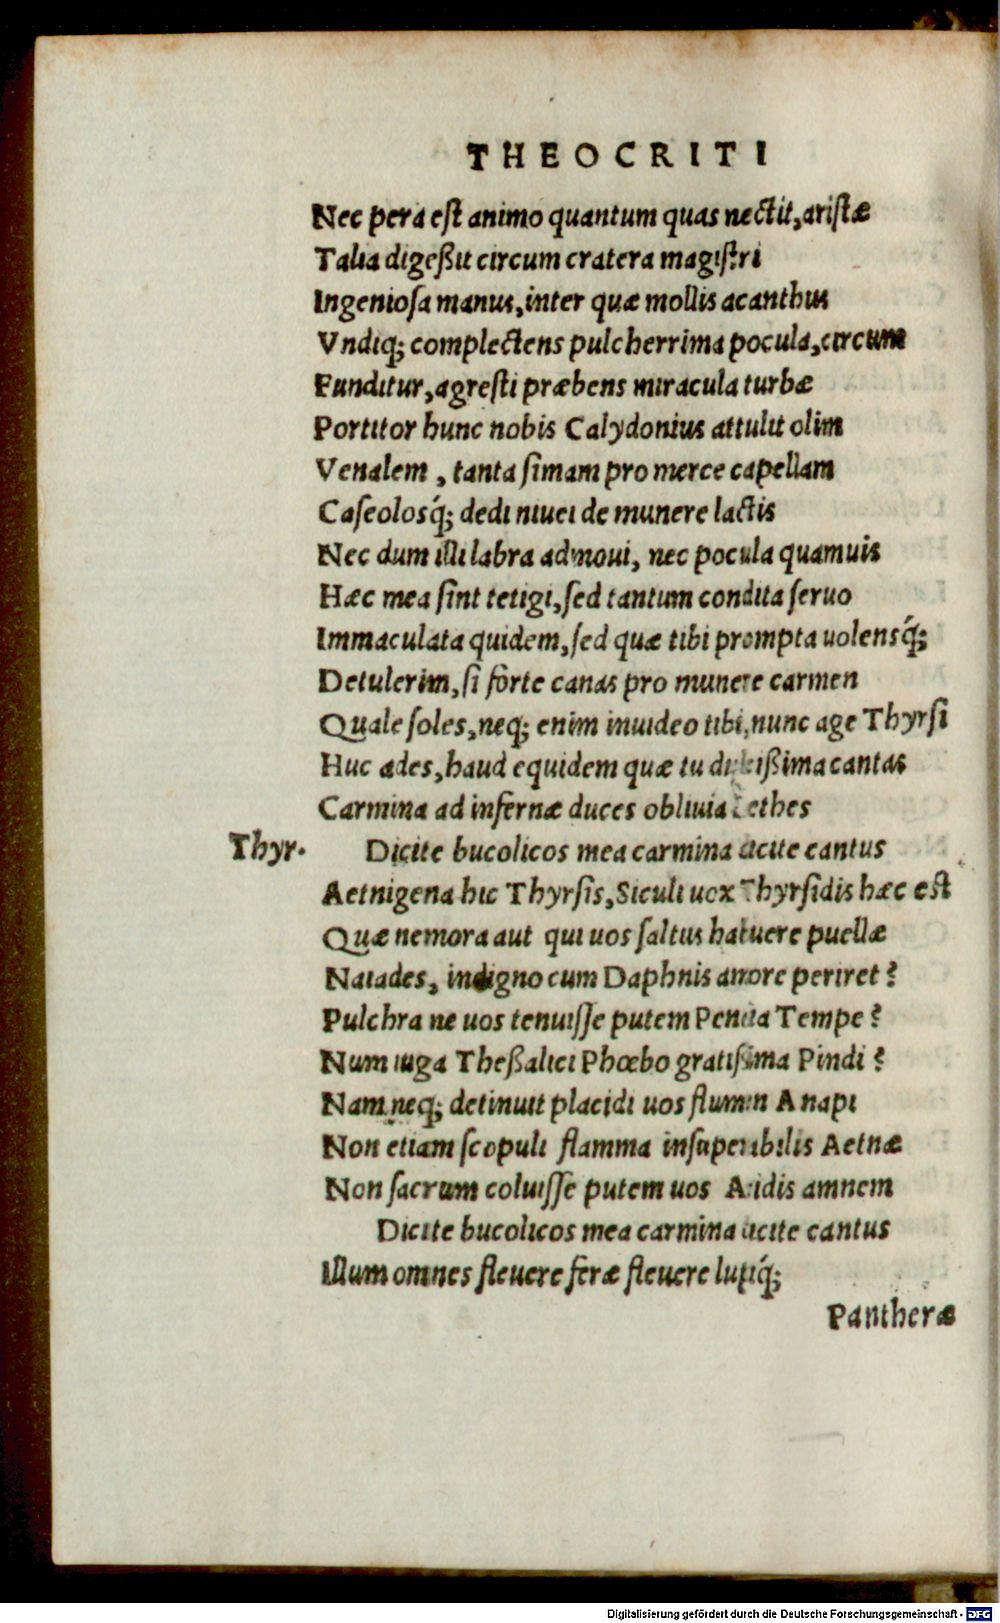 THEOCRITI
Nec pera est animo quantum quas nectit, aristæ
Talia digeßit circum cratera magistri
Ingeniosa manus, inter quæ mollis acanthus
Vndiq; complectens pulcherrima pocula, circum
Funditur, agresti præbens miracula turbæ
Portitor hunc nobis Calydonius attulit olim
Venalem, tanta simam pro merce capellam
Caseolosq́; dedi niuei de munere lactis
Nec dum illi labra admoui, nec pocula quamuis
Hæc mea sint tetigi, sed tantum condita seruo
Immaculata quidem, sed quæ tibi prompta uolensq́;
Detulerim, si forte canas pro munere carmen
Quale soles, neq; enim inuideo tibi, nunc age Thyrsi
Huc ades, haud equidem quæ tu dulcißima cantas
Carmina ad infernæ duces obliuia Lethes
Thyr. Dicite bucolicos mea carmina dicite cantus
Aetnigena hic Thyrsis, Siculi uox Thyrsidis hæc est
Quæ nemora aut qui uos saltus habuere puellæ
Naiades, indigno cum Daphnis amore periret?
Pulchra ne uos tenuisse putem Peneia Tempe?
Num iuga Theßalici Phœbo gratissima Pindi?
Nam neq; detinuit placidi uos flumen Anapi
Non etiam scopuli flamma insuperabilis Aetnæ
Non sacrum coluisse putem uos Acidis amnem
Dicite bucolicos mea carmina dicite cantus
Illum omnes fleuere feræ fleuere lupiq́;
Pantheræ
Digitalisierung gefördert durch die Deutsche Forschungsgemeinschaft - DFG